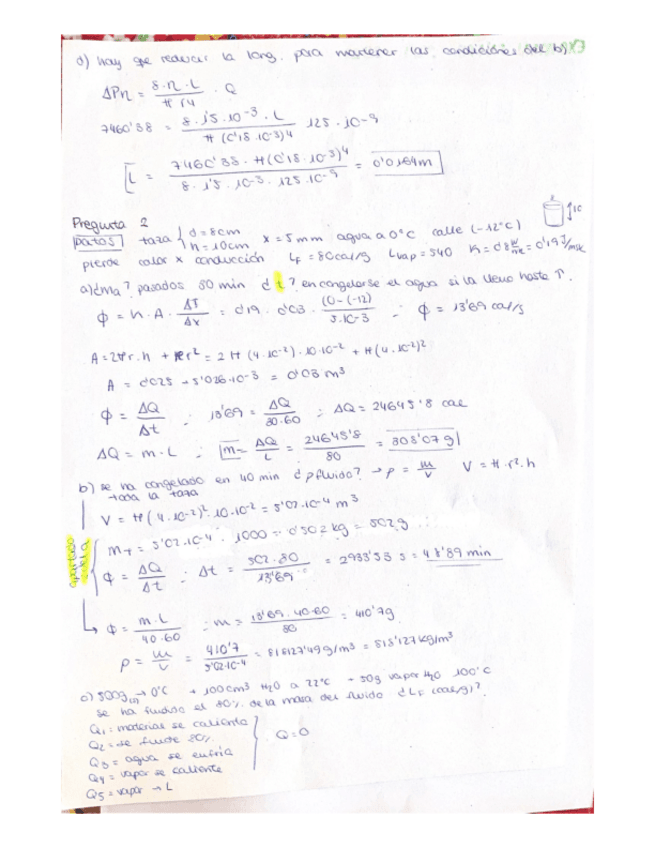 d) hay que reducir la long. para mantener las condiciones del b)
ΔPη = 8·η·L / π r4 · Q
7460'38 = 8·1'5·10-3·L / π (0'18·10-3)4 · 125·10-9
L = 7460'38·π(0'18·10-3)4 / 8·1'5·10-3·125·10-9 = 0'0164m
Pregunta 2
Datos taza { d=8cm h=10cm x=5mm agua a 0°C calle (-12°C)
pierde calor x conducción LF=80cal/g Lvap=540
a) ¿ma? pasados 30 min ¿t? en congelarse el agua si la lleno hasta ↑.
Φ = K·A·ΔT/Δx = 0'19·0'03·(0-(-12))/5·10-3 ∴ Φ = 13'69 cal/s
A=2πr·h + πr2 = 2π(4·10-2)·10·10-2 + π(4·10-2)2
A = 0'025 + 5'026·10-3 = 0'03 m3
Φ = ΔQ/Δt ∴ 13'69 = ΔQ/30·60 ∴ ΔQ = 24645'8 cal
ΔQ = m·L ∴ m = ΔQ/L = 24645'8/80 = 308'07 g
b) se ha congelado en 40 min ¿ρfluido? → ρ = m/V V = π·r2·h
toda la taza
V = π(4·10-2)2·10·10-2 = 5'02·10-4 m3
mT = 5'02·10-4·1000 = 0'502 kg = 502g
apartado
Φ = ΔQ/Δt ∴ Δt = 502·80/13'69 = 2933'53 s = 48'89 min
Φ = m·L/40·60 ∴ m = 13'69·40·60/80 = 410'7g
ρ = m/V = 410'7/5'02·10-4 = 818127'49 g/m3 = 818'127kg/m3
c) 500g(s) → 0°C + 100cm3 H2O a 22°C + 50g vapor H2O 100°C
se ha fundido el 80% de la masa del fluido ¿LF (cal/g)?
Q1 = materias se calienta
Q2 = se funde 80%
Q3 = agua se enfría
Q4 = vapor se calienta
Q5 = vapor → L
Q=0